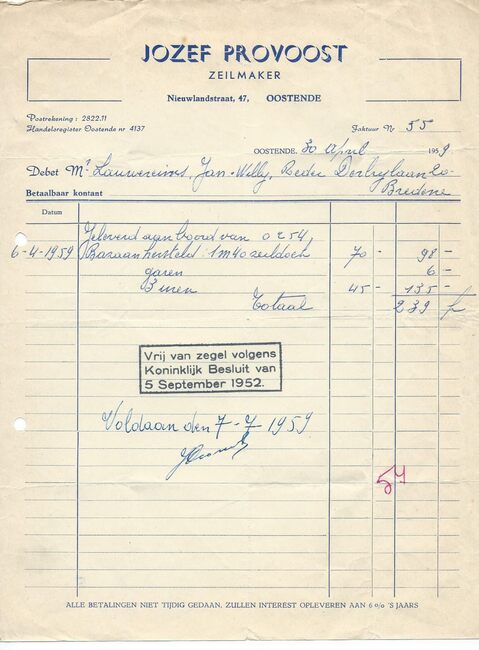 JOZEF PROVOOST
ZEILMAKER
Nieuwlandstraat, 47, OOSTENDE
Postrekening : 2822.11
Handelsregister Oostende nr 4137
Faktuur Nr 55
OOSTENDE, 30 April 1959
Debet Mr Lauwereins, Jan-Willy, Reder Derbylaan 20
Betaalbaar kontant Bredene
Datum
Geleverd aan boord van 0254,
6-4-1959 Bazaan hersteld : 1m40 zeildoek 70 - 98 -
garen 6 -
3 uren 45 - 135 -
Totaal 239 f
Vrij van zegel volgens
Koninklijk Besluit van
5 September 1952.
Voldaan den 7-7 1959
54
ALLE BETALINGEN NIET TIJDIG GEDAAN, ZULLEN INTEREST OPLEVEREN AAN 6 o/o 'S JAARS